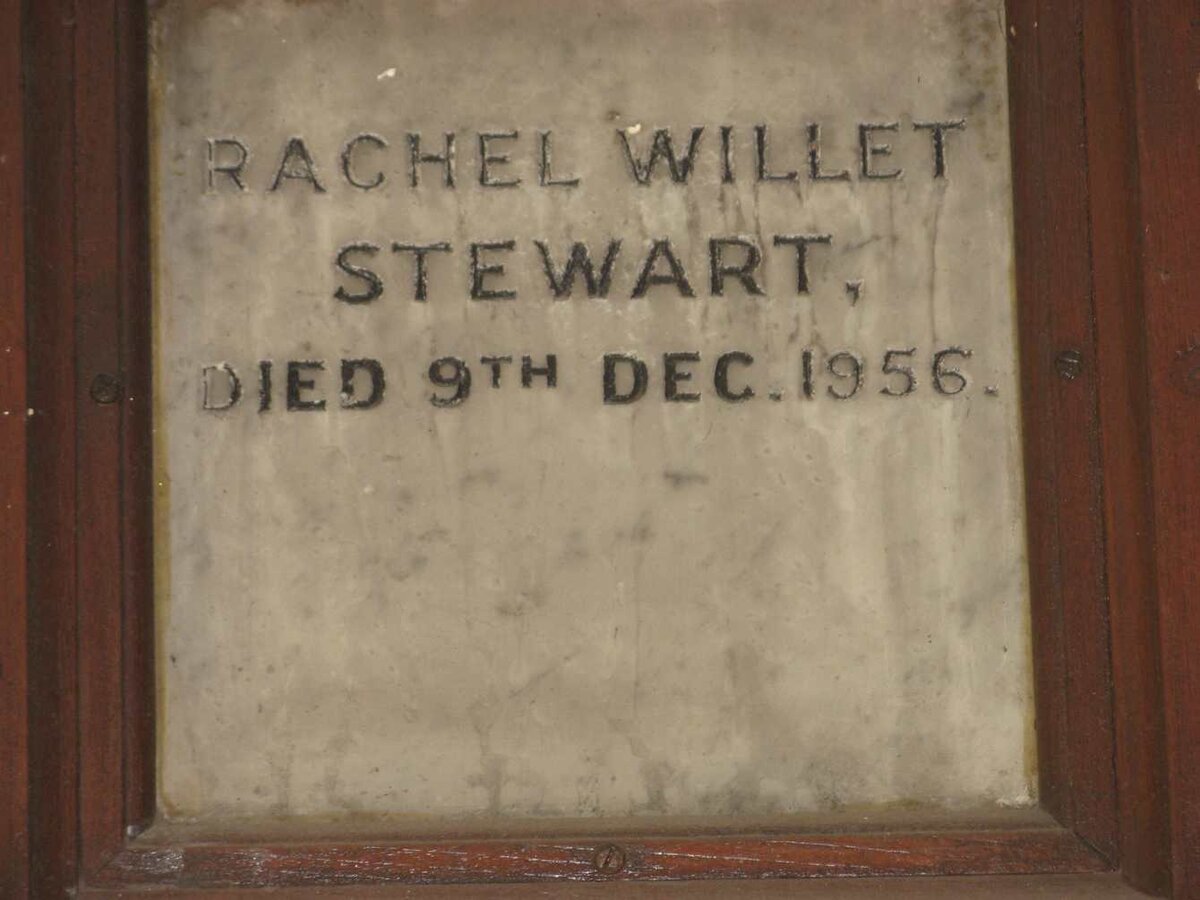 RACHEL WILLET
STEWART,
DIED 9TH DEC. 1956.